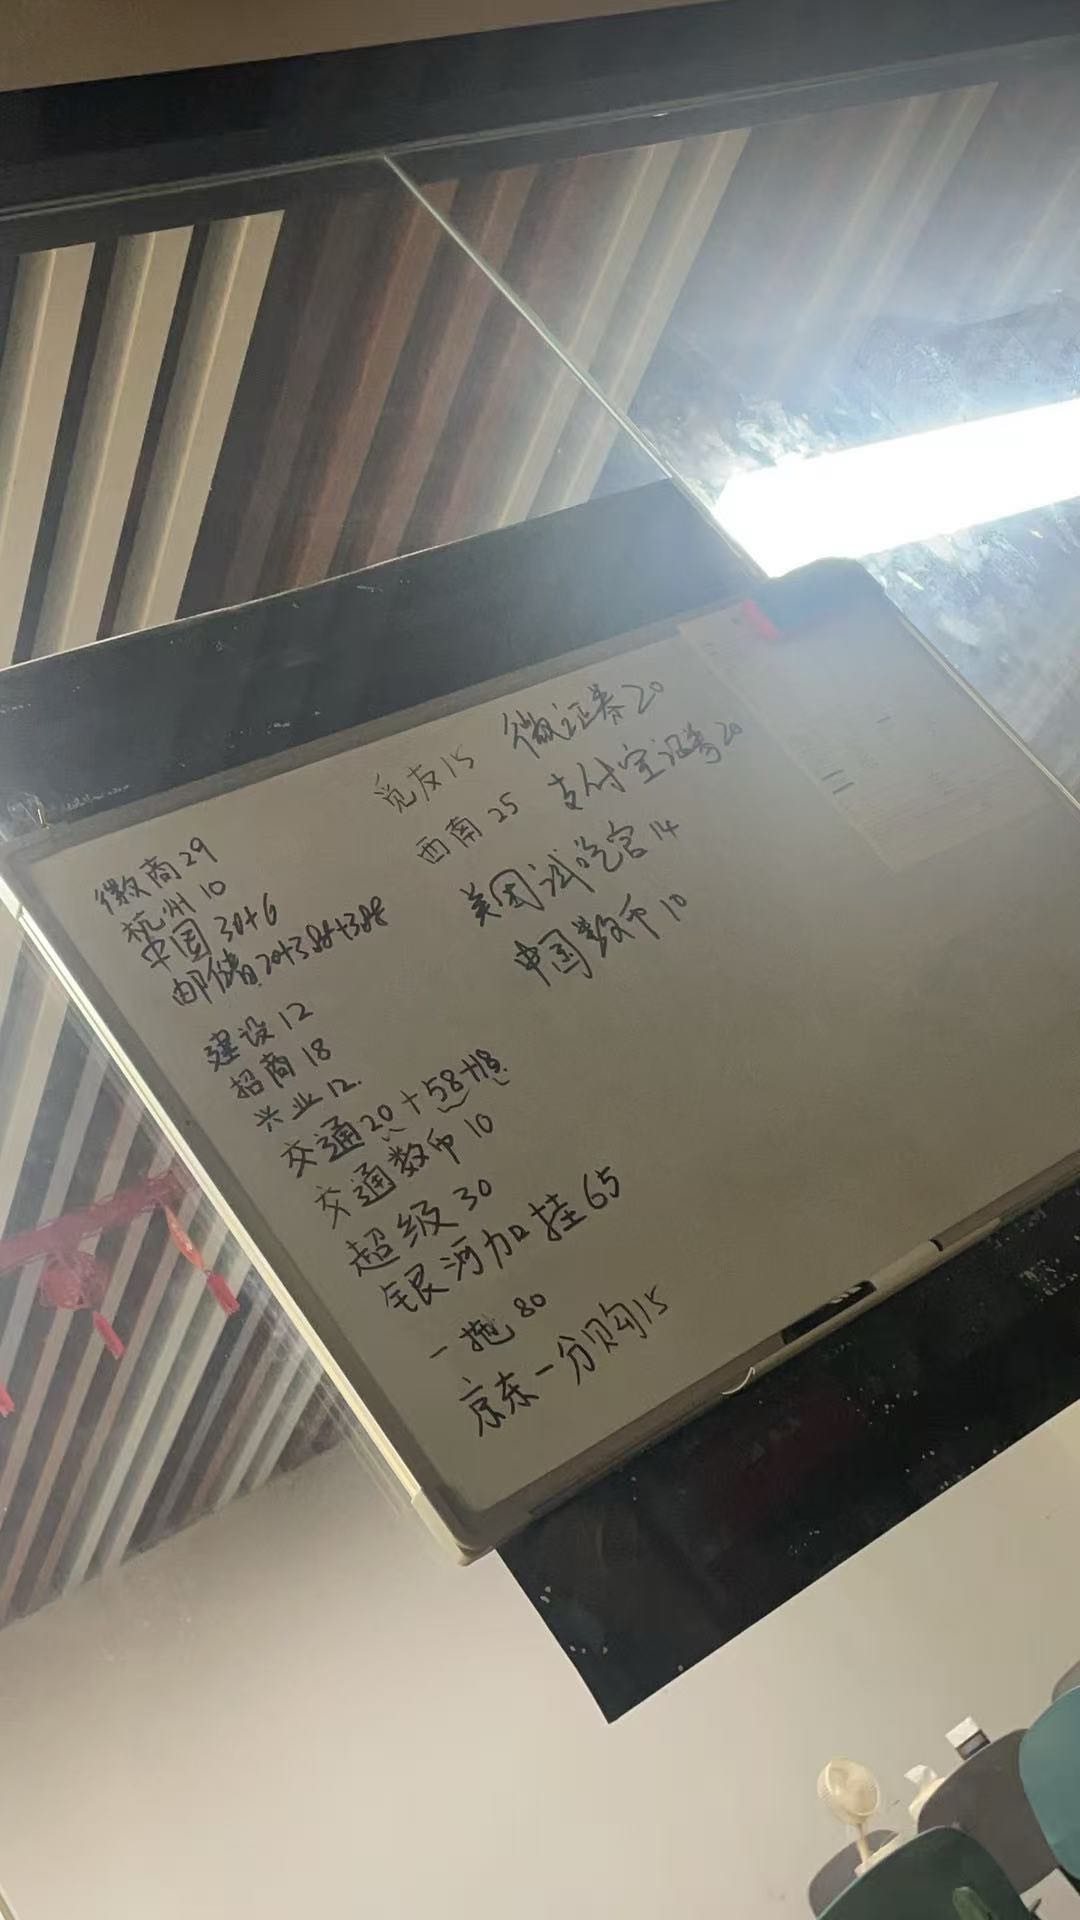 徽商29
杭州10
中国30+6
邮储20+38+38
建设12
招商18
兴业12.
交通20+58+18
交通数币10
超级30
银河加挂65
一拖80
京东一分购15
觅友15
西南25
微证券20
支付宝证券20
美团试吃官14
中国数币10